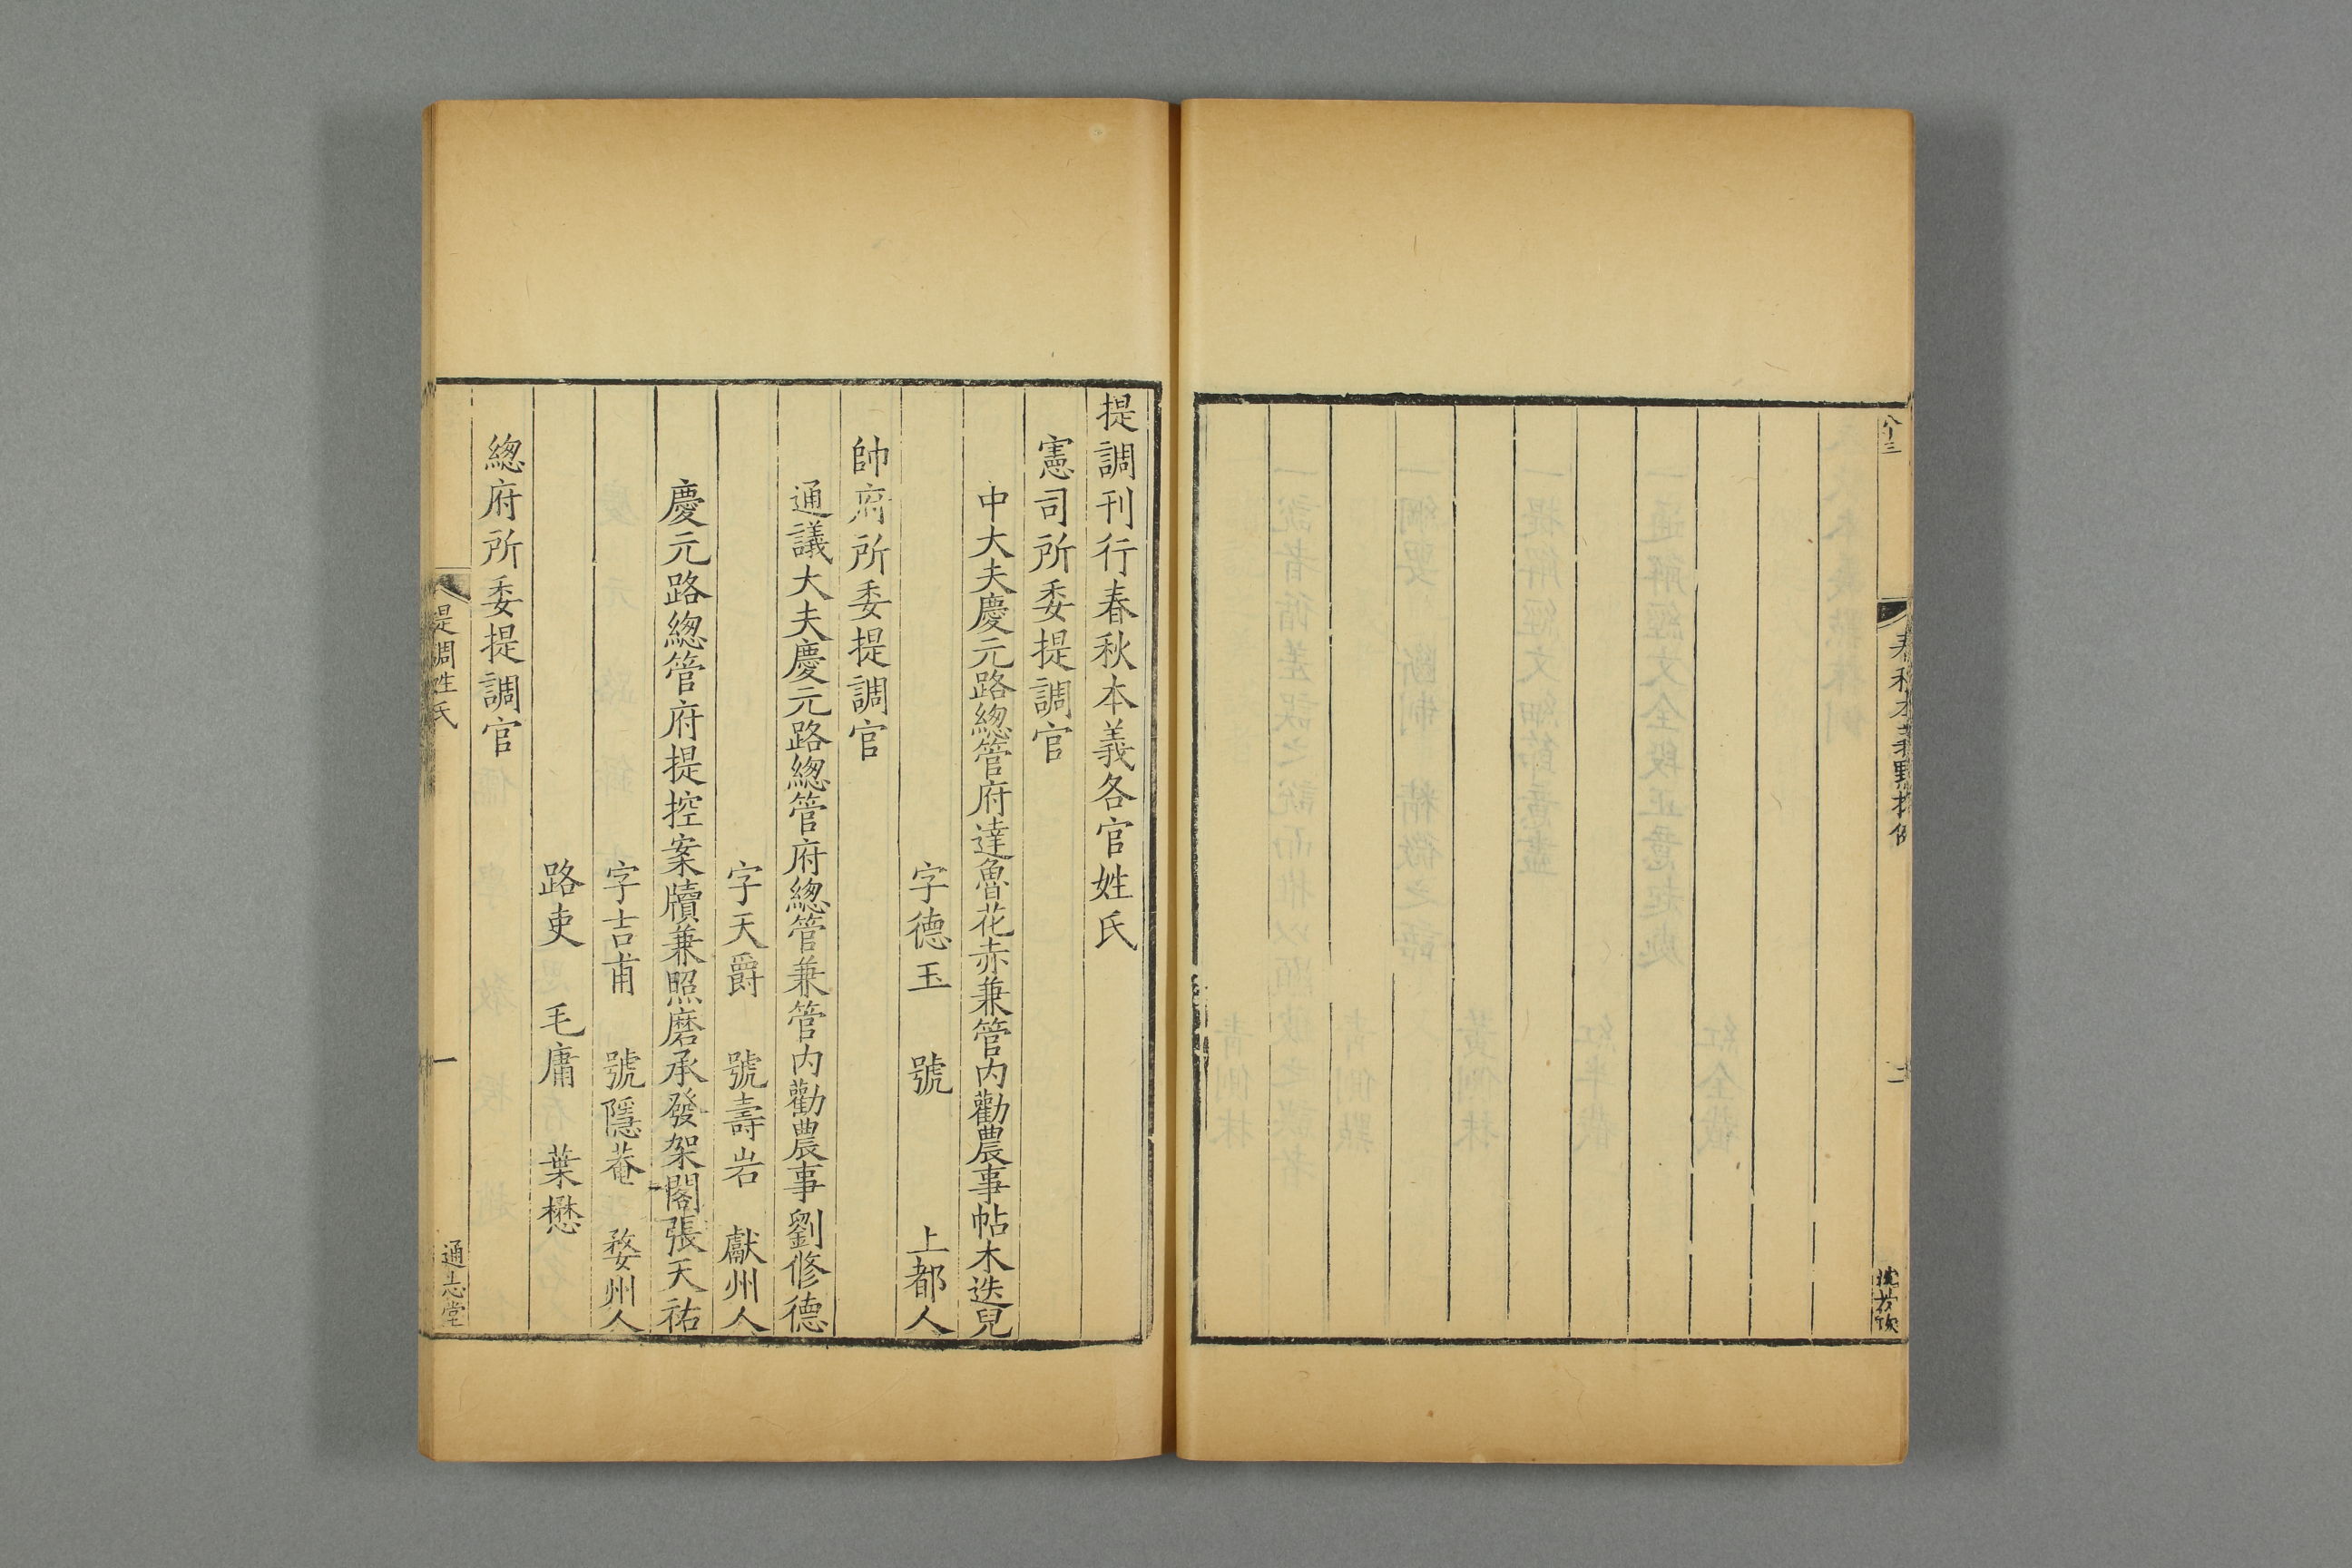 春秋本義點抹例
提調刊行春秋本義各官姓氏
憲司所委提調官
中大夫慶元路緫管府達魯花赤兼管内勸農事帖木迭兒
字德玉　號　上都人
帥府所委提調官
通議大夫慶元路緫管府緫管兼管内勸農事劉修德
字天爵　號壽岩　獻州人
慶元路緫管府提控案牘兼照磨承發架閣張天祐
字吉甫　號隱菴　婺州人
路吏　毛庸　葉懋
緫府所委提調官
提調姓氏
一
通志堂